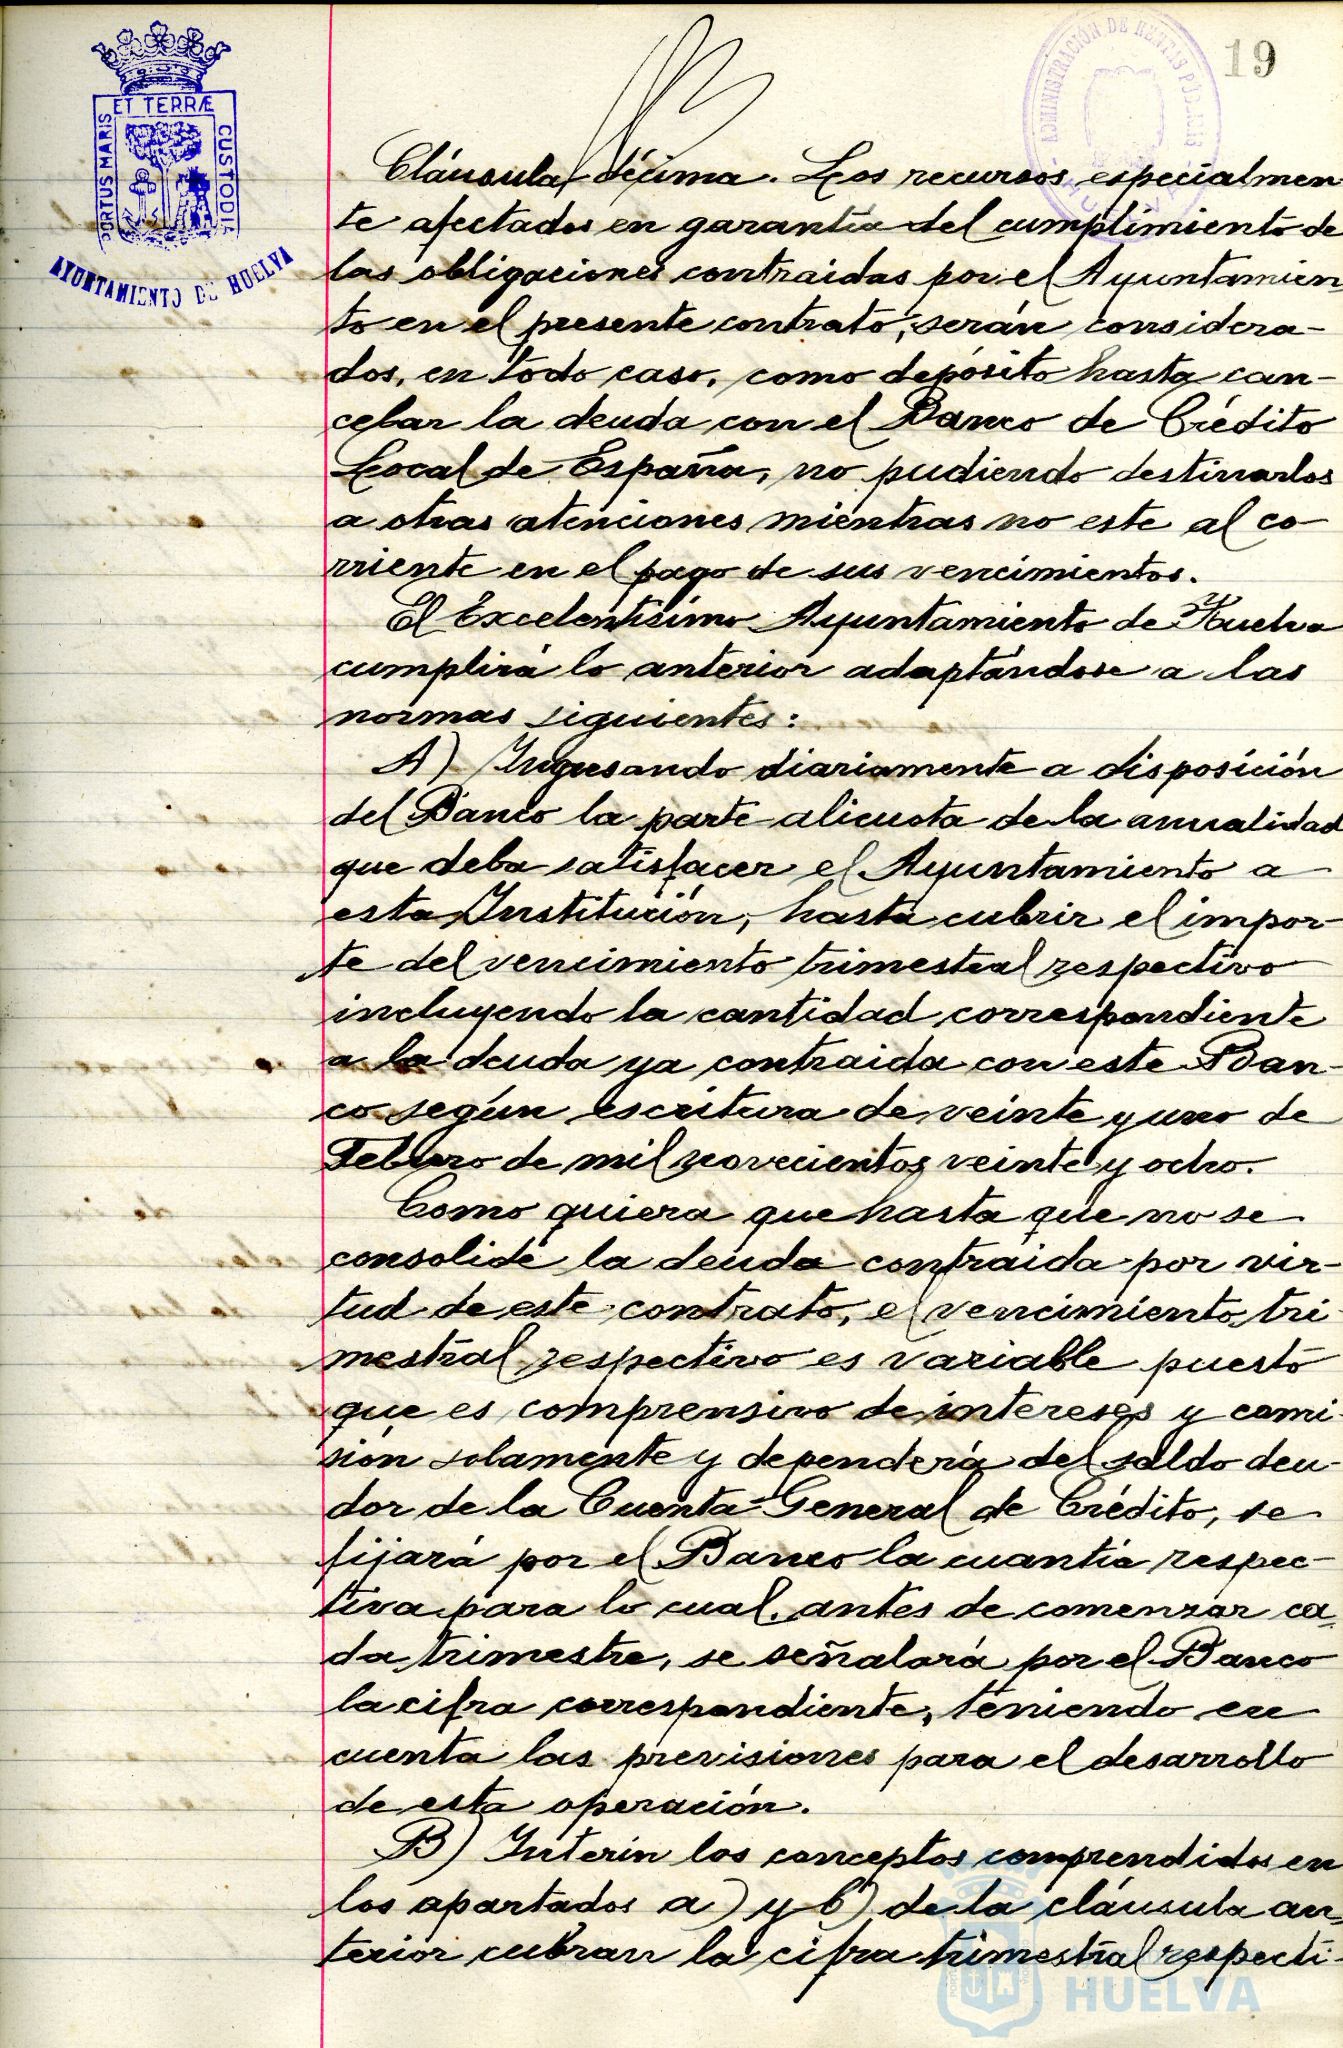 19
ADMINISTRACIÓN DE RENTAS PÚBLICAS
ET TERRÆ
PORTUS MARIS
CUSTODIA
AYUNTAMIENTO DE HUELVA
Cláusula décima. Los recursos especialmen
te afectados en garantía del cumplimiento de
las obligaciones contraidas por el Ayuntamien
to en el presente contrato, serán considera-
dos, en todo caso, como depósito hasta can-
celar la deuda con el Banco de Crédito
Local de España, no pudiendo destinarlos
a otras atenciones mientras no este al co-
rriente en el pago de sus vencimientos.
El Excelentísimo Ayuntamiento de Huelva
cumplirá lo anterior adaptándose a las
normas siguientes:
A) Ingresando diariamente a disposición
del Banco la parte alicuota de la anualidad
que deba satisfacer el Ayuntamiento a
esta Institución, hasta cubrir el impor-
te del vencimiento trimestral respectivo
incluyendo la cantidad correspondiente
a la deuda ya contraida con este Ban-
co según escritura de veinte y uno de
Febrero de mil novecientos veinte y ocho.
Como quiera que hasta que no se
consolide la deuda contraida por vir-
tud de este contrato, el vencimiento tri-
mestral respectivo es variable puesto
que es comprensivo de intereses y comi-
sión solamente y dependerá del saldo deu-
dor de la Cuenta General de Crédito, se
fijará por el Banco la cuantía respec-
tiva para lo cual, antes de comenzar ca-
da trimestre, se señalará por el Banco
la cifra correspondiente, teniendo en
cuenta las previsiones para el desarrollo
de esta operación.
B) Interin los conceptos comprendidos en
los apartados a) y b) de la cláusula an-
terior cubran la cifra trimestral respecti-
HUELVA